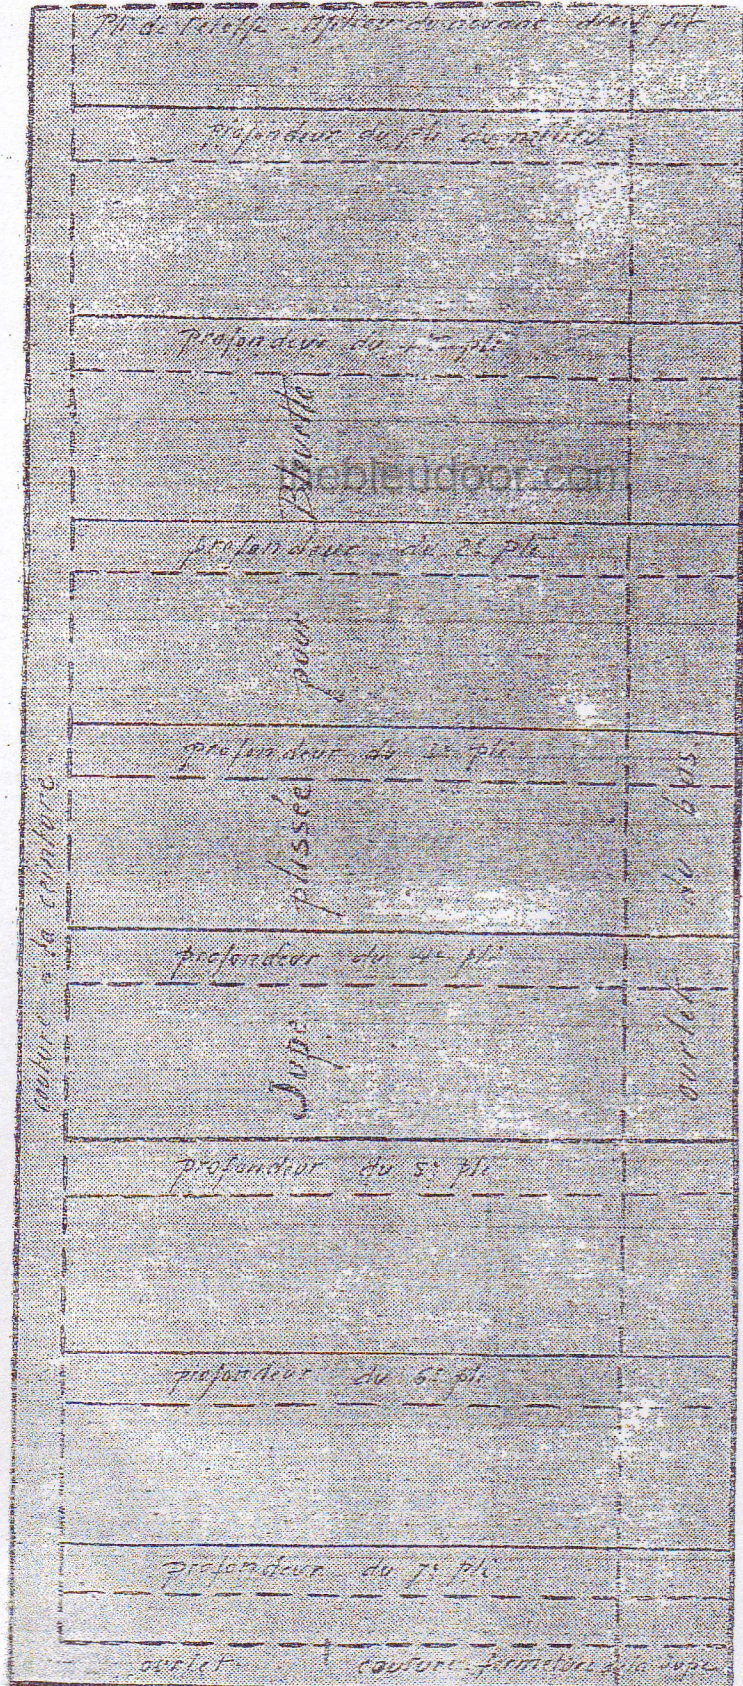 Pli de l'étoffe - milieu du devant droit fil
profondeur du pli du milieu
profondeur du 1er pli
thebleudoor.com
profondeur du 2e pli
profondeur du 3e pli
profondeur du 4e pli
profondeur du 5e pli
profondeur du 6e pli
profondeur du 7e pli
ourlet
couture fermeture de la jupe
couture à la ceinture
Jupe plissée pour Bleuette
ourlet du bas